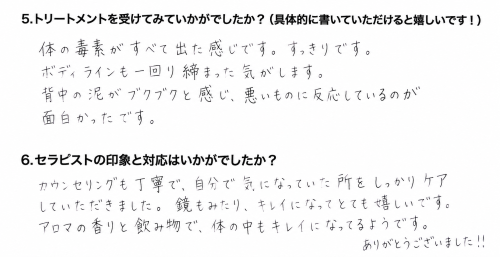 5.トリートメントを受けてみていかがでしたか？（具体的に書いていただけると嬉しいです！）
体の毒素がすべて出た感じです。すっきりです。
ボディラインも一回り締まった気がします。
背中の泥がブクブクと感じ、悪いものに反応しているのが
面白かったです。
6.セラピストの印象と対応はいかがでしたか？
カウンセリングも丁寧で、自分で気になっていた所をしっかりケア
していただきました。鏡もみたり、キレイになってとても嬉しいです。
アロマの香りと飲み物で、体の中もキレイになってるようです。
ありがとうございました!!